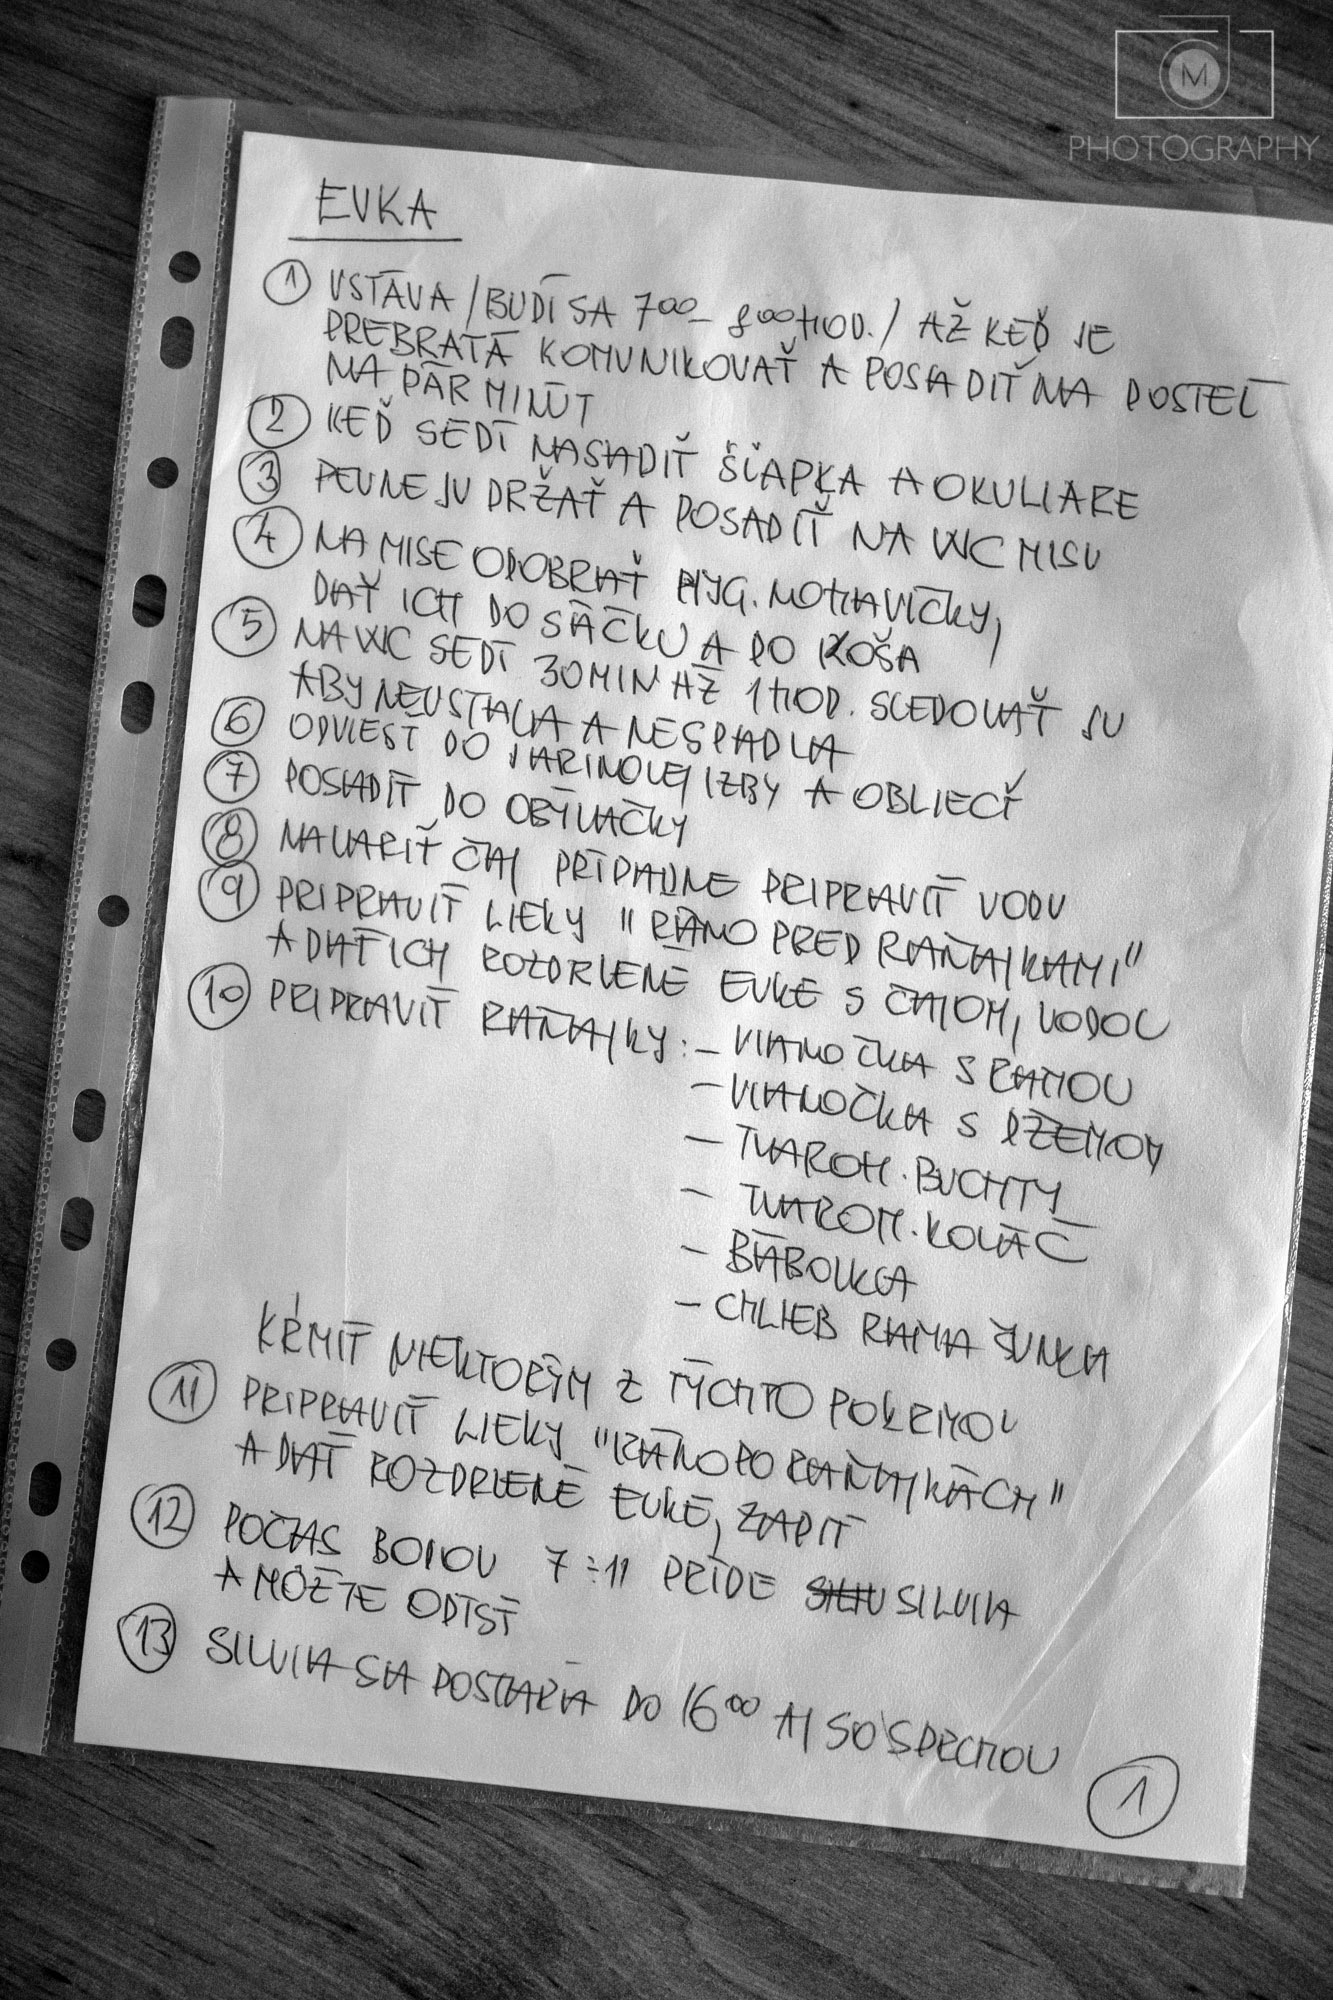 M
PHOTOGRAPHY
EVKA
1 VSTÁVA / BUDÍ SA 7⁰⁰– 8⁰⁰HOD. / AŽ KEĎ JE
PREBRATÁ KOMUNIKOVAŤ A POSADIŤ NA POSTEĽ
NA PÁR MINÚT
2 KEĎ SEDÍ NASADIŤ ŠĽAPKA A OKULIARE
3 PEVNE JU DRŽAŤ A POSADIŤ NA WC MISU
4 NA MISE ODOBRAŤ HYG. NOHAVIČKY,
DAŤ ICH DO SÁČKU A DO KOŠA
5 NA WC SEDÍ 30MIN AŽ 1HOD. SLEDOVAŤ JU
ABY NEVSTALA A NESPADLA
6 ODVIESŤ DO JARINOLEJ IZBY A OBLIECŤ
7 POSADIŤ DO OBÝVAČKY
8 NAVARIŤ ČAJ PRÍPADNE PRIPRAVIŤ VODU
9 PRIPRAVIŤ LIEKY "RÁNO PRED RAŇAJKAMI"
A DAŤ ICH ROZDRVENÉ EVKE S ČAJOM, VODOU
10 PRIPRAVIŤ RAŇAJKY: – VIANOČKA S RAMOU
– VIANOČKA S DŽEMOM
– TVAROH. BUCHTY
– TVAROH. KOLÁČ
– BÁBOVKA
– CHLIEB RAMA ŠUNKA
KŔMIŤ NIEKTORÝM Z TÝCHTO POKRMOV
11 PRIPRAVIŤ LIEKY "RÁNO PO RAŇAJKÁCH"
A DAŤ ROZDRVENÉ EVKE, ZAPIŤ
12 POČAS BODOV 7÷11 PRÍDE SILVIA
A MÔŽTE ODÍSŤ
13 SILVIA SA POSTARÁ DO 16⁰⁰ AJ SO SPRCHOU
1